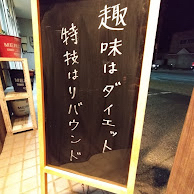 趣味はダイエット
特技はリバウンド